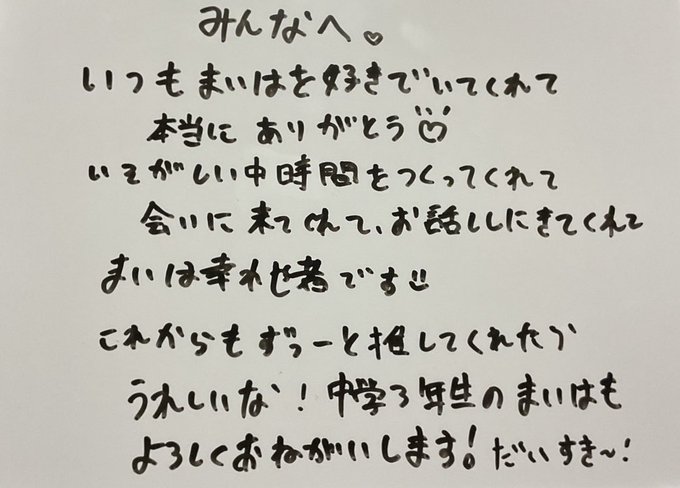 みんなへ♡
いつもまいはを好きでいてくれて
本当にありがとう
いそがしい中時間をつくってくれて
会いに来てくれて、お話ししにきてくれて
まいは幸れせ者です
これからもずっーと推してくれたら
うれしいな!中学3年生のまいはも
よろしくおねがいします!だいすき~!